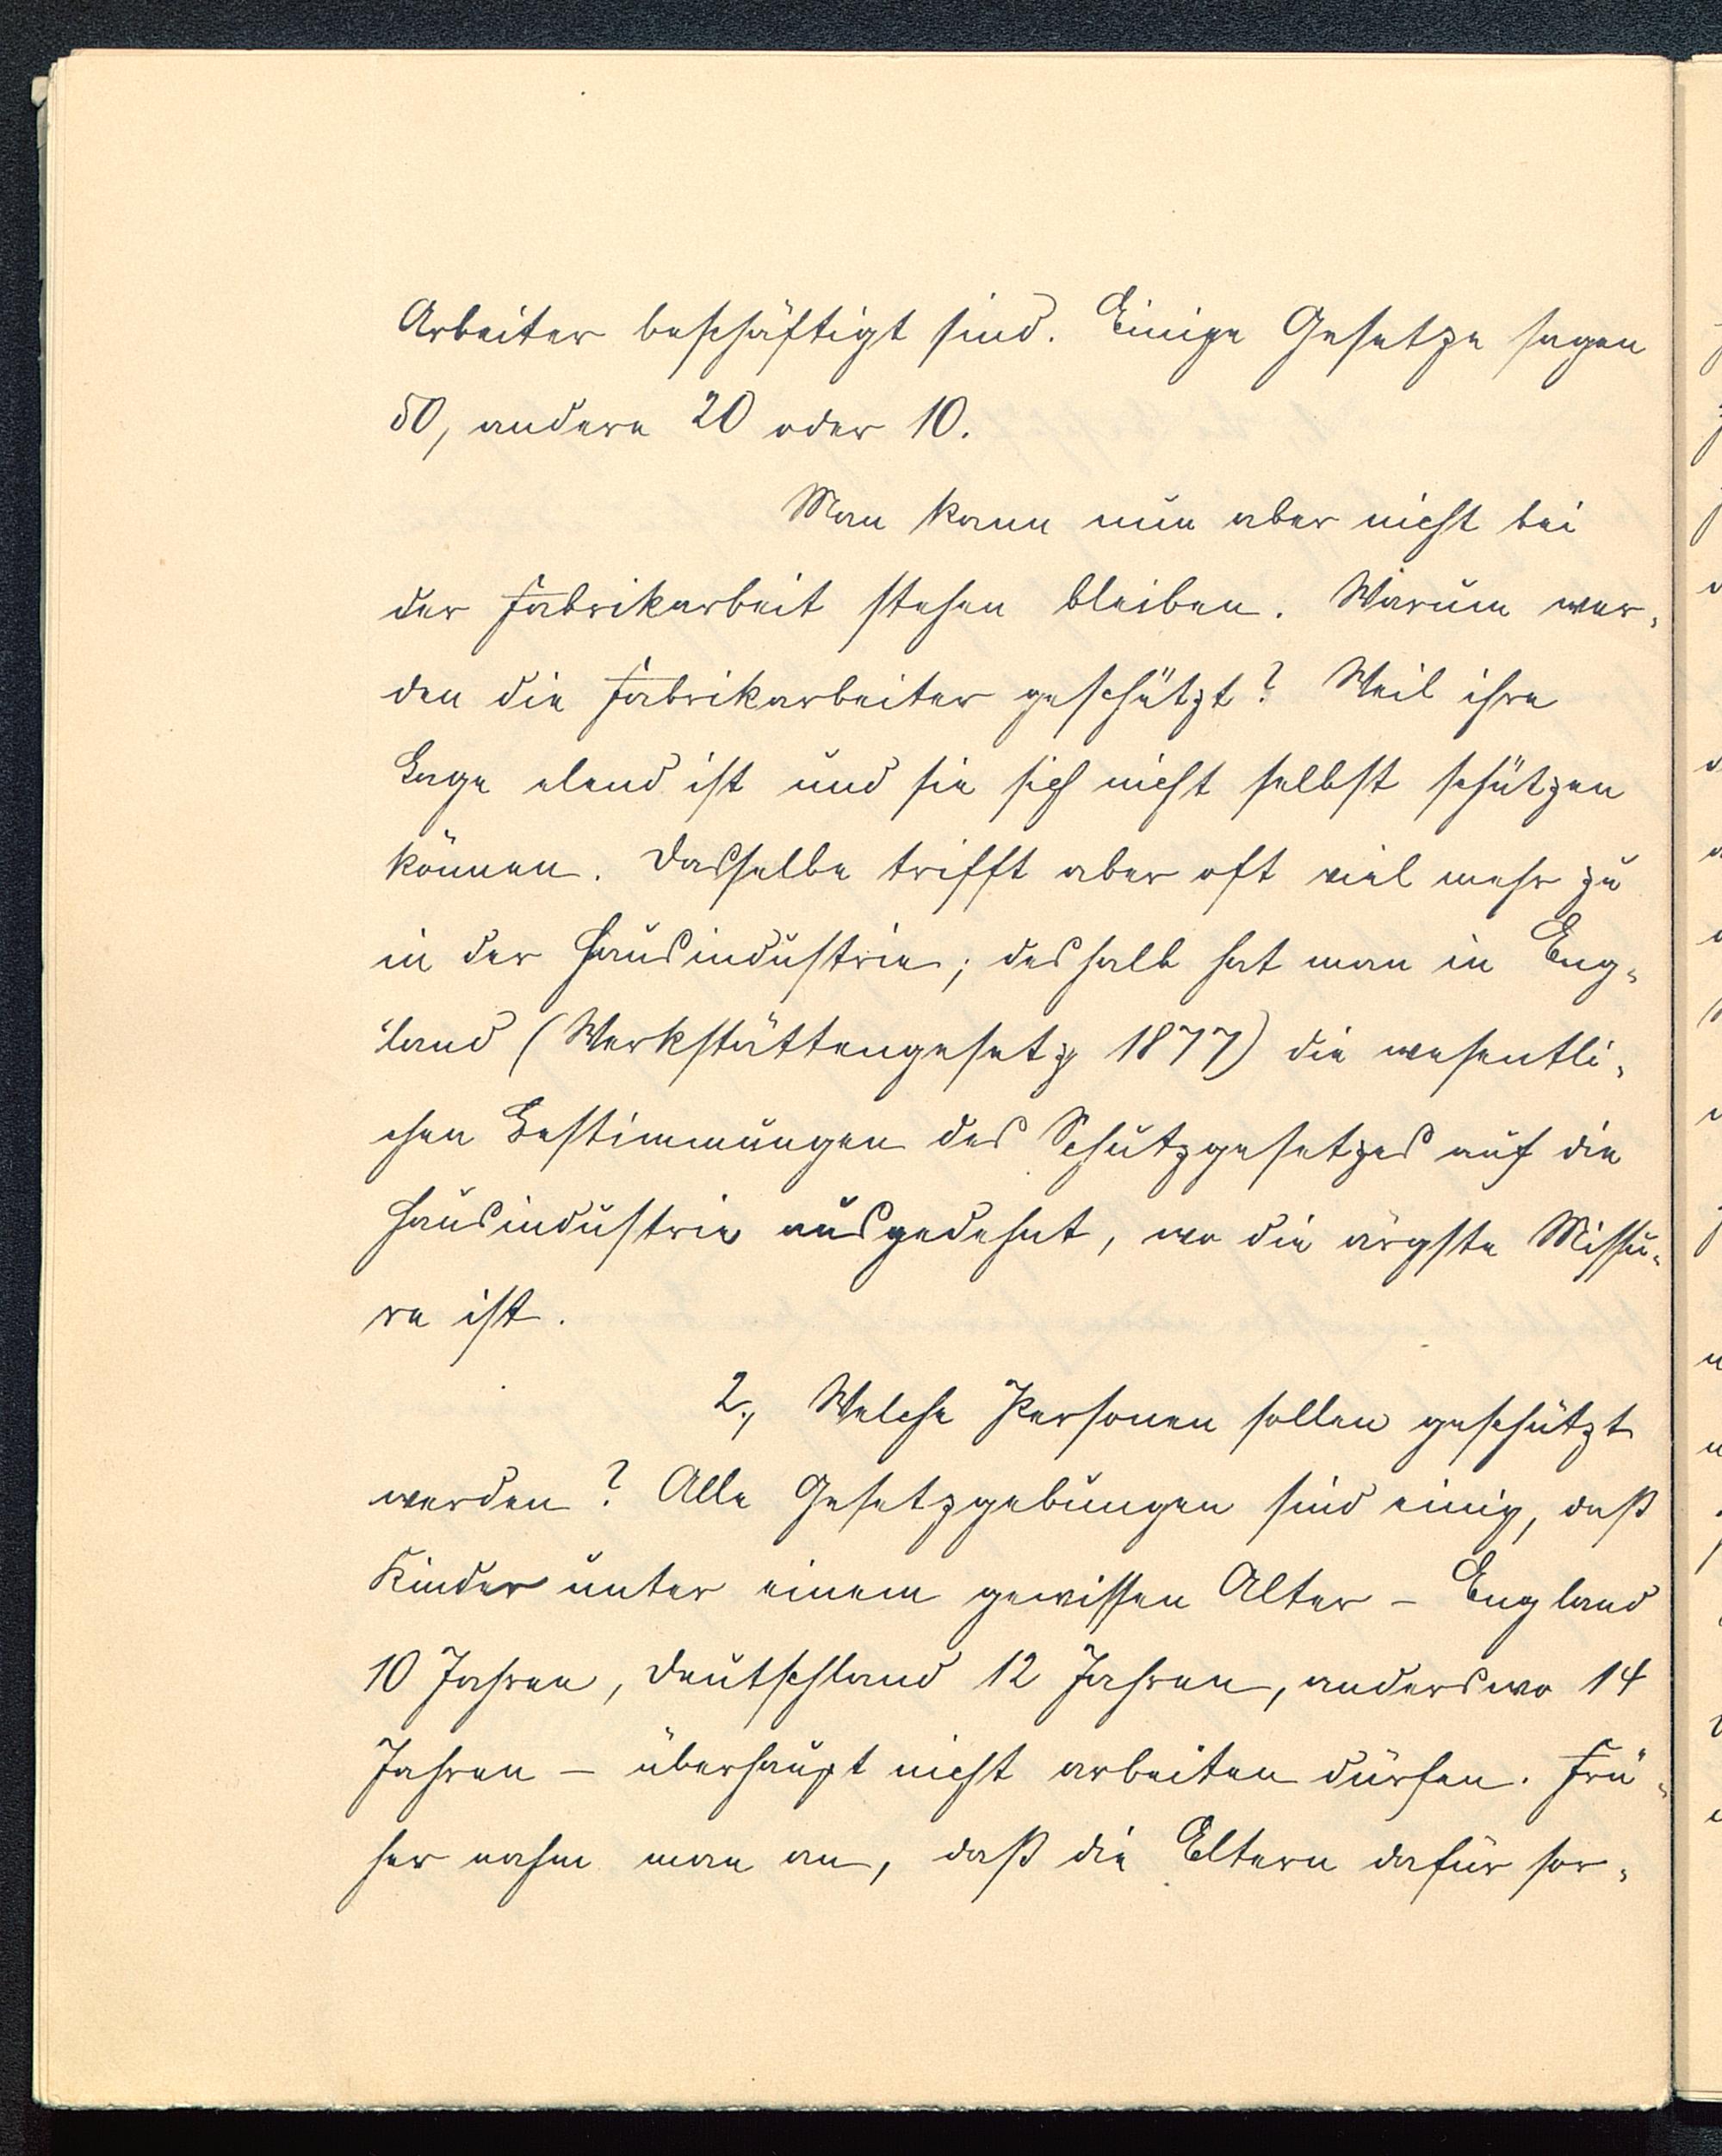 Arbeiter beschäftigt sind. Einige Gesetze sagen
50, andere 20 oder 10.
Man kann nun aber nicht bei
der Fabrikarbeit stehen bleiben. Warum wer-
den die Fabrikarbeiter geschützt? Weil ihre
Lage elend ist und sie sich nicht selbst schützen
können. Dasselbe trifft aber oft viel mehr zu
in der Hausindustrie; deshalb hat man in Eng-
land (Werkstättengesetz 1877) die wesentli-
chen Bestimmungen des Schutzgesetzes auf die
Hausindustrie ausgedehnt, wo die ärgste Missè-
re ist.
2., Welche Personen sollen geschützt
werden? Alle Gesetzgebungen sind einig, daß
Kinder unter einem gewissen Alter – England
10 Jahren, Deutschland 12 Jahren, anderswo 14
Jahren – überhaupt nicht arbeiten dürfen. Frü-
her nahm man an, daß die Eltern dafür sor-